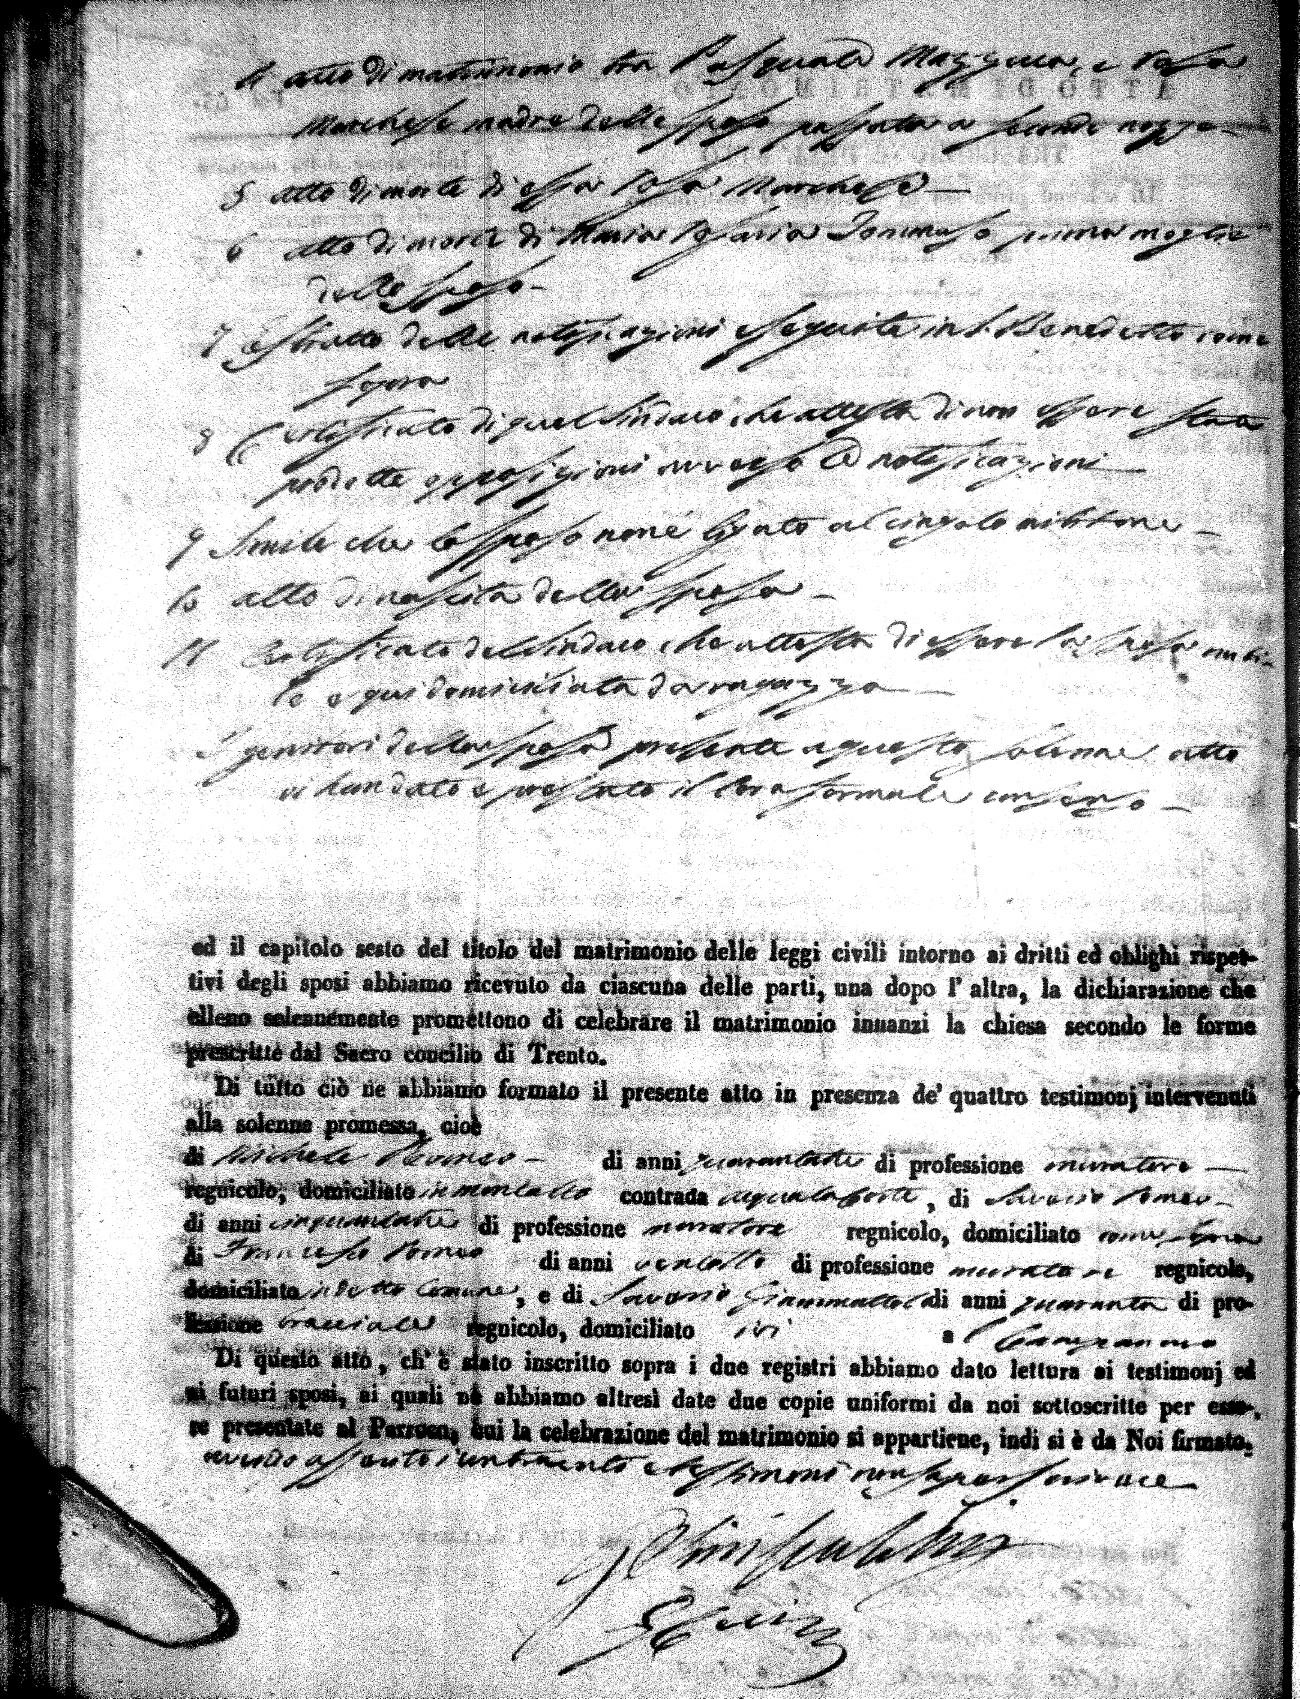 4 atto di matrimonio tra Pasquale Mazzuca, e Rosa
Marchese madre dello sposo passata a seconde nozze
5 atto di morte di essa Rosa Marchese
6 atto di morte di Maria Rosaria Tommaso prima moglie
dello sposo
7 Estratto delle notificazioni eseguite in S. Benedetto come
sopra
8 Certificato di quel Sindaco che attesta di non essere stata
prodotte opposizioni avverso le notificazioni
9 Simile che lo sposo non è ligato al cingolo militare
10 atto di nascita della sposa
11 Certificato del Sindaco che attesta di essere la sposa nubi-
le e qui domiciliata da ragazza
I genitori della sposa presente a questo solenne atto
vi han dato e prestato il loro formale consenso
ed il capitolo sesto del titolo del matrimonio delle leggi civili intorno ai dritti ed oblighi rispet-
tivi degli sposi abbiamo ricevuto da ciascuna delle parti, una dopo l' altra, la dichiarazione che
elleno solennemente promettono di celebrare il matrimonio innanzi la chiesa secondo le forme
prescritte dal Sacro concilio di Trento.
Di tutto ciò ne abbiamo formato il presente atto in presenza de' quattro testimonj intervenuti
alla solenne promessa, cioè
di Michele Romeo di anni quarantatre di professione muratore
regnicolo, domiciliato in Montalto contrada , di Saverio Romeo
di anni cinquantatre di professione muratore regnicolo, domiciliato come sopra
di Francesco Romeo di anni ventotto di professione muratore regnicolo,
domiciliato in detto Comune, e di Saverio di anni quaranta di pro-
fessione bracciale regnicolo, domiciliato ivi a
Di questo atto, ch' è stato inscritto sopra i due registri abbiamo dato lettura ai testimonj ed
ai futuri sposi, ai quali ne abbiamo altresì date due copie uniformi da noi sottoscritte per esse-
re presentate al Parroco, cui la celebrazione del matrimonio si appartiene, indi si è da Noi firmato,
avendo asserito i contraenti e testimoni non saper scrivere